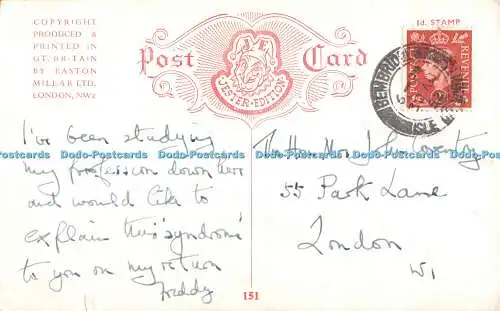 COPYRIGHT
PRODUCED &
PRINTED IN
GT. BRITAIN
BY EASTON
MILLAR LTD.
LONDON, NW2
Post Card
JESTER EDITION
1d. STAMP
POSTAGE REVENUE
BEMBRIDGE
ISLE
I've been studying
my profession down here
and would like to
explain this 'syndrome'
to you on my return
Freddy
The Hon. Mrs. J. Coventry
55 Park Lane
London
W1
151
Dodo-Postcards Dodo-Postcards Dodo-Postcards Dodo-Postcards
Dodo-Postcards Dodo-Postcards Dodo-Postcards Dodo-Postcards